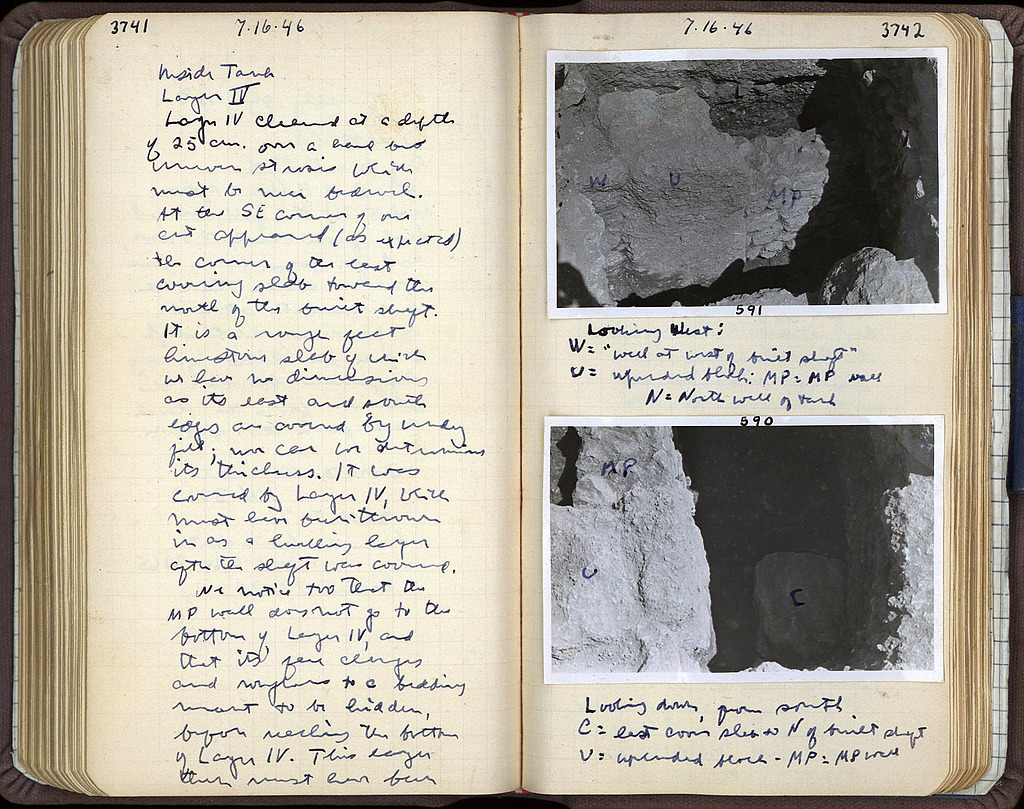 3741
7.16.46
Inside Tank
Layer IV
Layer IV cleared at a depth
of 25 cm. over a hard but
uneven stratum which
must be near bedrock.
At the SE corner of our
cut appeared (as expected)
the corner of the east
covering slab toward the
north of the built shaft.
It is a rough
limestone slab of which
we have no dimensions
as its east and south
edges are covered by
fill; nor can we determine
its thickness. It was
covered by Layer IV, which
must have been thrown
in as a level
ling layer
after the shaft was covered.
We notice too that the
MP wall does not go to the
bottom of Layer IV, and
that its face changes
and roughens to a bedding
meant to be hidden,
before reaching the bottom
of Layer IV. This layer
then must have been
7.16.46
3742
W
U
MP
591
Looking West:
W = "wall at west of built shaft"
U = upended block: MP = MP wall
N = North wall of tank
590
MP
U
C
Looking down, from south
C = east cover slab to N of built shaft
U = upended block - MP = MP wall